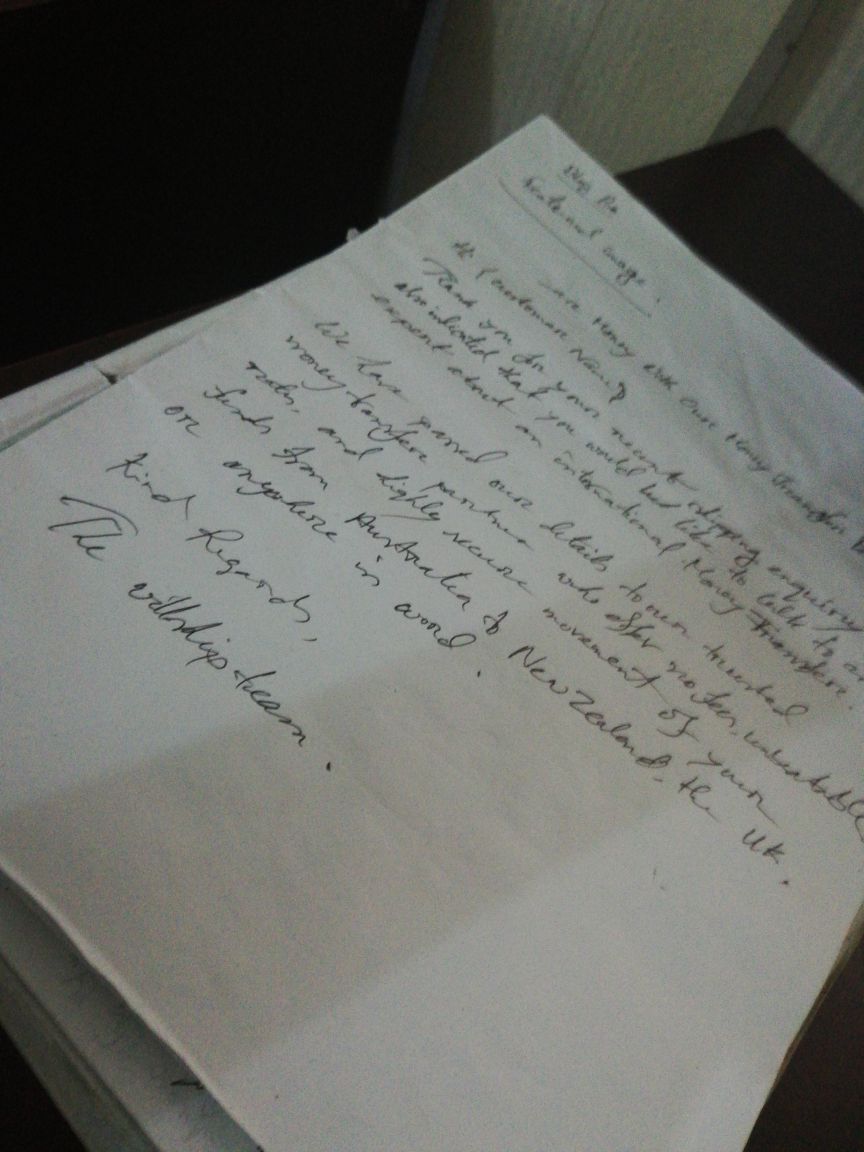 Save Money with our Money Transfer
Hi [customer Name]
Thank you for your recent shipping enquiry
also indicated that you would had like to talk to an
expert about an international Money Transfer.
We have passed our details to our trusted
money-transfer partner who offer no fees, unbeatable
rates, and highly secure movement of your
funds from Australia to New Zealand, the UK.
or anywhere in word.
Kind Regards,
The team.